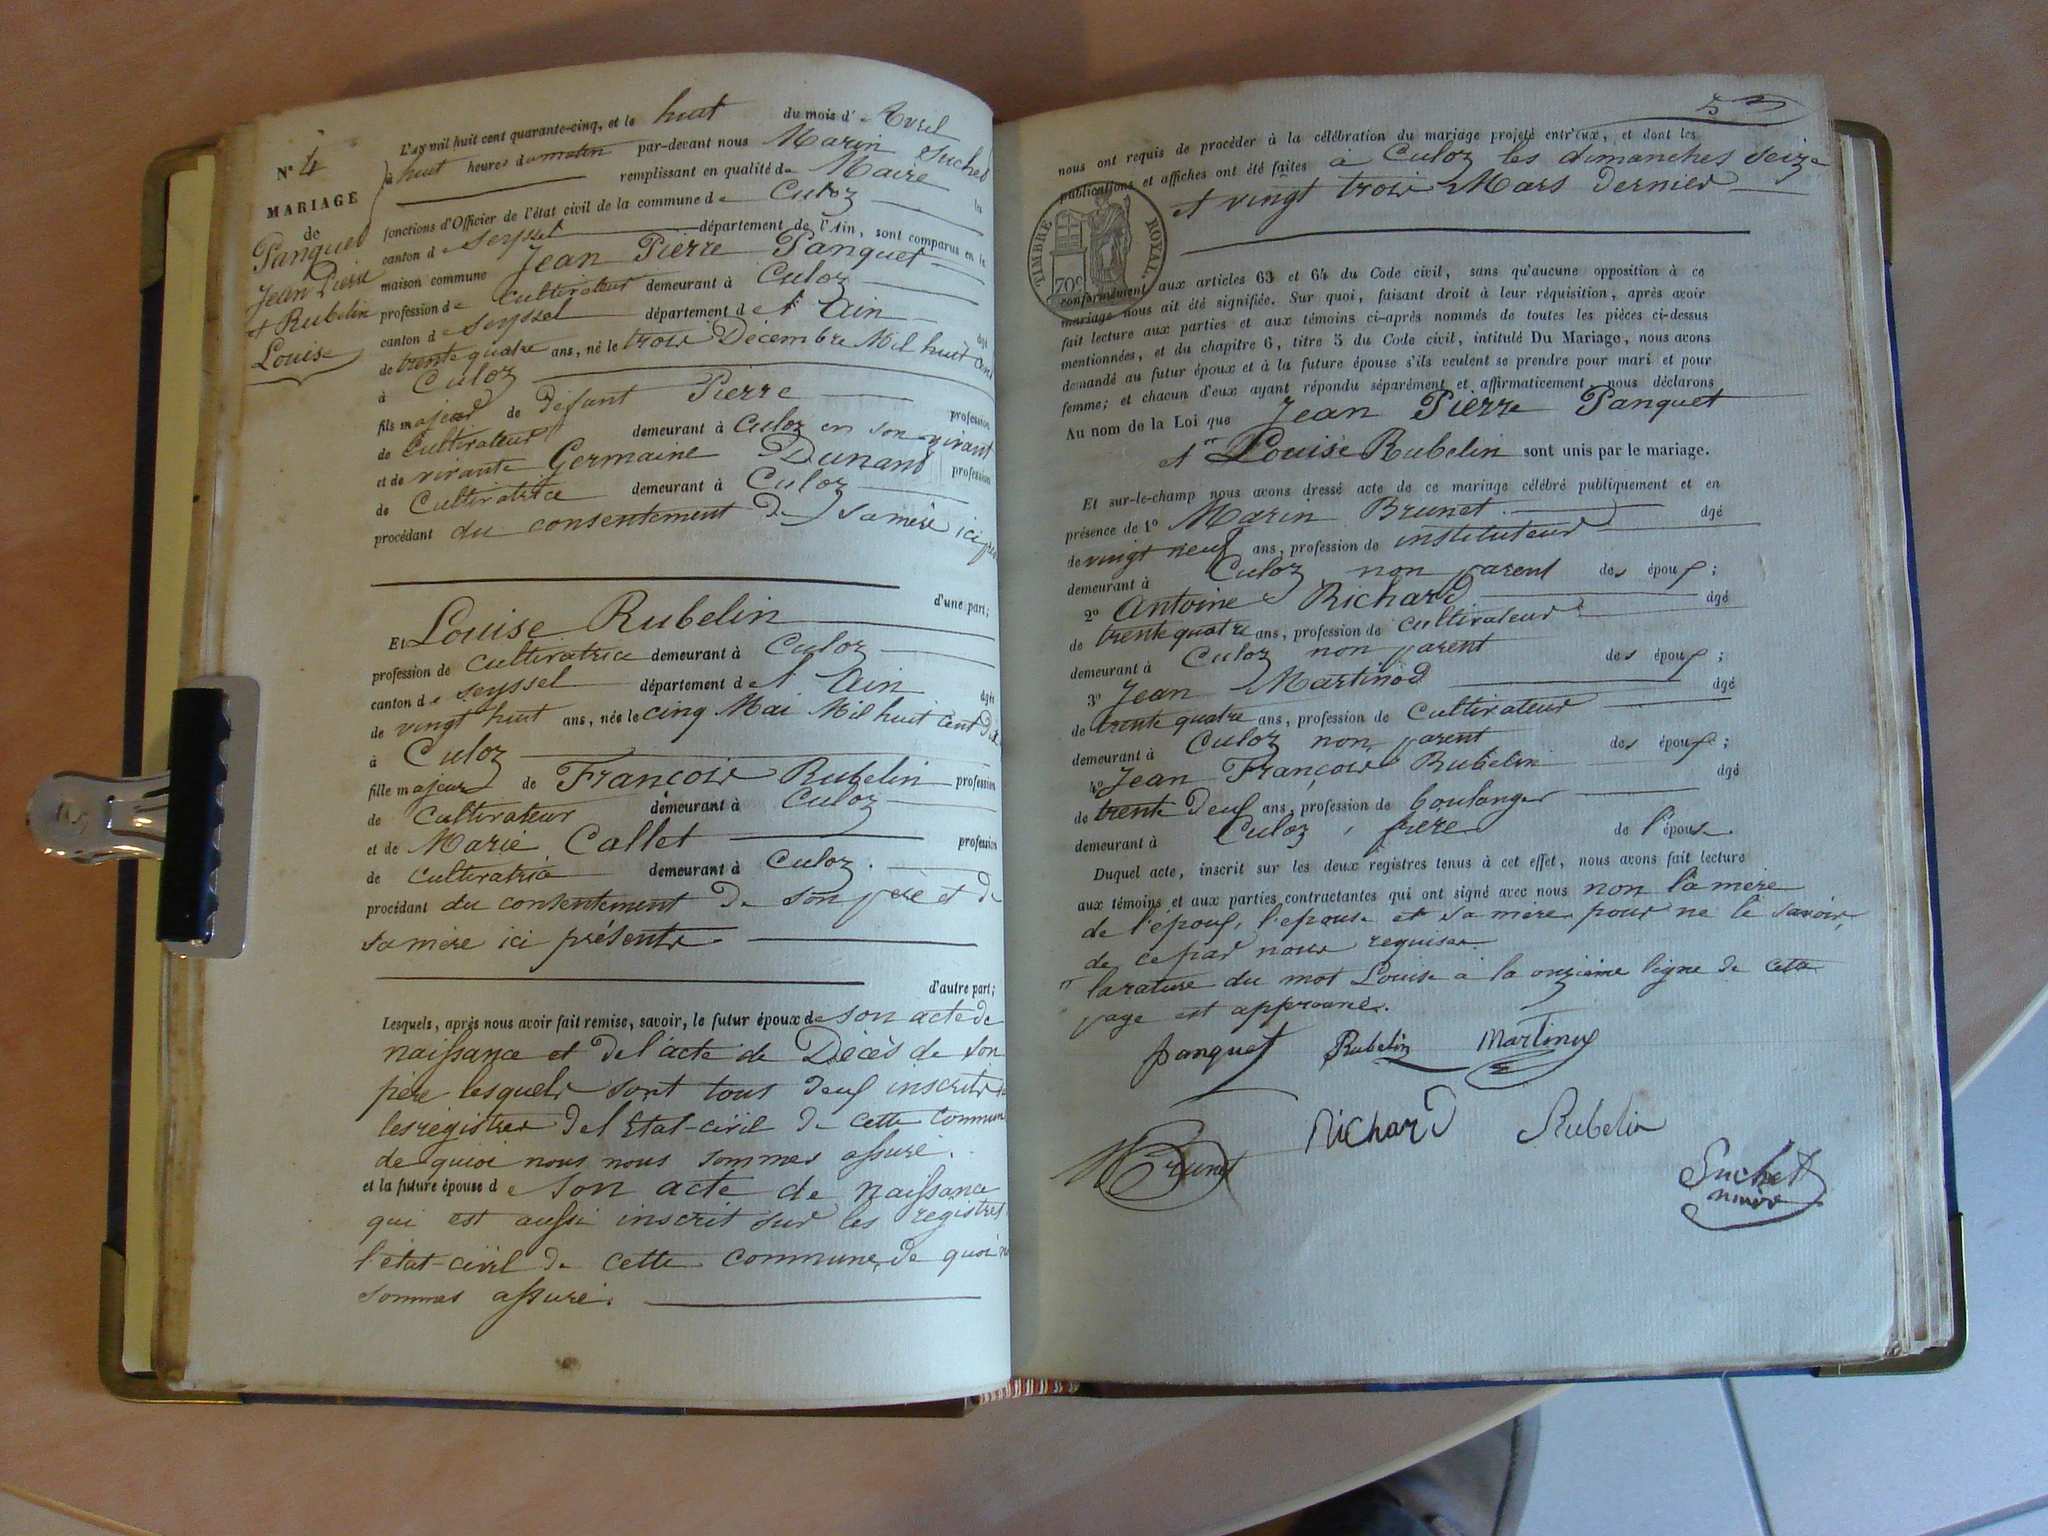 N° 4
MARIAGE
de
Panquet
Jean Pierre
et Rubelin
Louise
L'an mil huit cent quarante-cinq, et le huit du mois d' Avril
à huit heures du matin par-devant nous Marin Suchet
remplissant en qualité de Maire
fonctions d'Officier de l'état civil de la commune de Culoz
canton de Seyssel département de l'Ain, sont comparus en la
maison commune Jean Pierre Panquet
profession de Cultivateur demeurant à Culoz
canton de Seyssel département de l'Ain âgé
de trente quatre ans, né le trois Décembre Mil huit cent
à Culoz
fils majeur de défunt Pierre profession
de Cultivateur demeurant à Culoz en son vivant
et de vivante Germaine Dunand profession
de Cultivatrice demeurant à Culoz
procédant du consentement de sa mère ici
d'une part;
Et Louise Rubelin
profession de cultivatrice demeurant à Culoz
canton de Seyssel département de l'Ain âgée
de vingt huit ans, née le cinq Mai Mil huit Cent Dix
à Culoz
fille majeure de François Rubelin profession
de Cultivateur demeurant à Culoz
et de Marie Callet profession
de cultivatrice demeurant à Culoz.
procédant du consentement de son père et de
sa mère ici présents.
d'autre part;
Lesquels, après nous avoir fait remise, savoir, le futur époux de son acte de
naissance et de l'acte de Décès de son
père lesquels sont tous deux inscrits
les registres de l'Etat-civil de cette commune
de quoi nous nous sommes assuré.
et la future épouse de son acte de naissance
qui est aussi inscrit sur les registres
l'état-civil de cette commune, de quoi
sommes assuré.
53
nous ont requis de procéder à la célébration du mariage projeté entr'eux, et dont les
publications et affiches ont été faites à Culoz les dimanches seize
et vingt trois Mars dernier
TIMBRE ROYAL
70c
conformément aux articles 63 et 64 du Code civil, sans qu'aucune opposition à ce
mariage nous ait été signifiée. Sur quoi, faisant droit à leur réquisition, après avoir
fait lecture aux parties et aux témoins ci-après nommés de toutes les pièces ci-dessus
mentionnées, et du chapitre 6, titre 5 du Code civil, intitulé Du Mariage, nous avons
demandé au futur époux et à la future épouse s'ils veulent se prendre pour mari et pour
femme; et chacun d'eux ayant répondu séparément et affirmativement, nous déclarons
Au nom de la Loi que Jean Pierre Panquet
et Louise Rubelin sont unis par le mariage.
Et sur-le-champ nous avons dressé acte de ce mariage célébré publiquement et en
présence de 1° Marin Brunet âgé
de vingt neuf ans, profession de instituteur
demeurant à Culoz, non parent des époux;
2° Antoine Richard âgé
de trente quatre ans, profession de cultivateur
demeurant à Culoz non parent des époux;
3° Jean Martinod âgé
de trente quatre ans, profession de Cultivateur
demeurant à Culoz non parent des époux;
4° Jean François Rubelin âgé
de trente deux ans, profession de boulanger
demeurant à Culoz, frère de l'épouse.
Duquel acte, inscrit sur les deux registres tenus à cet effet, nous avons fait lecture
aux témoins et aux parties contractantes qui ont signé avec nous non la mère
de l'époux, l'épouse et sa mère pour ne le savoir,
de ce par nous requises.
la rature du mot Louise à la onzième ligne de cette
page est approuvée.
panquet Rubelin Martinod
Richard Rubelin
M Brunet
Suchet
maire